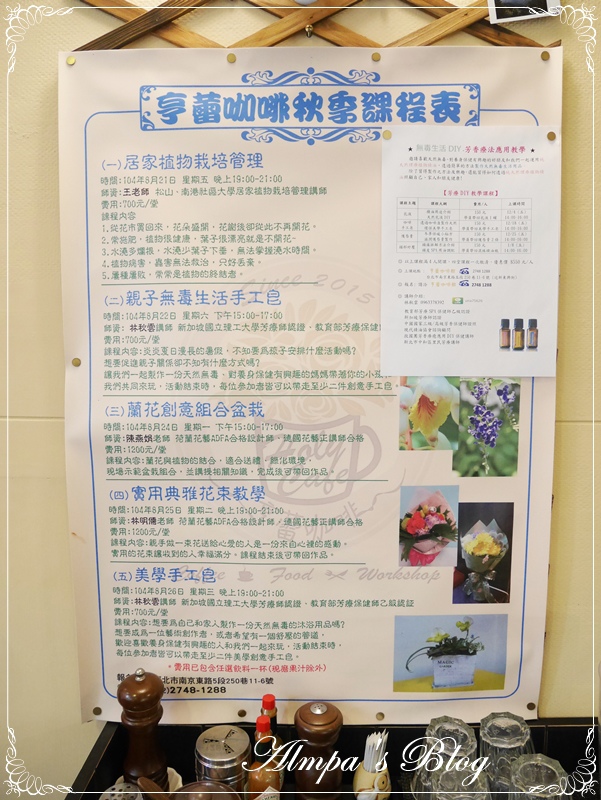 亨蕾咖啡秋季課程表
(一)居家植物栽培管理
時間:104年8月21日 星期五 晚上19:00-21:00
師資:王老師 松山、南港社區大學居家植物栽培管理講師
費用:700元/堂
課程內容
1.從花市買回來,花朵盛開,花謝後卻從此不再開花。
2.常施肥,植物很健康,葉子很漂亮就是不開花。
3.水澆多爛根,水澆少葉子下垂,無法掌握澆水時間。
4.植物病害,蟲害無法救治,只好丟棄。
5.屢種屢敗,常常是植物的終結者。
(二)親子無毒生活手工皂
時間:104年8月22日 星期六 下午15:00-17:00
師資:林秋雲講師 新加坡國立理工大學芳療師認證、教育部芳療保健
費用:700元/堂
課程內容:炎炎夏日漫長的暑假,不知要為孩子安排什麼活動嗎?
想要促進親子關係卻不知有什麼方式嗎?
讓我們一起製作一份天然無毒、對養身保健有興趣的媽媽帶著你的小
我們共同來玩,活動結束時,每位參加者皆可以帶走至少二件創意手工皂
(三)蘭花創意組合盆栽
時間:104年8月24日 星期一 下午15:00-17:00
師資:陳燕娘老師 荷蘭花藝ADFA合格設計師、德國花藝正講師合格
費用:1200元/堂
課程內容:蘭花與植物的結合,適合送禮,綠化環境。
現場示範盆栽組合,並講授相關知識,完成後可帶回作品。
(四)實用典雅花束教學
時間:104年8月25日 星期二 晚上19:00-21:00
師資:林明倩老師 荷蘭花藝ADFA合格設計師、德國花藝正講師合格
費用:1200元/堂
課程內容:親手做一束花送給心愛的人是一份來自心裡的感動。
實用的花束讓收到的人幸福滿分。課程結束後可帶回作品。
(五)美學手工皂
時間:104年8月26日 星期三 晚上19:00-21:00
師資:林秋雲講師 新加坡國立理工大學芳療師認證、教育部芳療保健師乙級認証
費用:700元/堂
課程內容:想要為自己和家人製作一份天然無毒的沐浴用品嗎?
想要成為一位藝術創作者,或者希望有一個紓壓的管道。
歡迎喜歡養身保健有興趣的人和我們一起來玩,活動結束時,
每位參加者皆可以帶走至少二件美學創意手工皂。
*費用已包含任選飲料一杯(現磨果汁除外)
北市南京東路5段250巷11-6號
2748-1288
Since 2015
Cafe
Food
Workshop
無毒生活DIY 芳香療法應用教學
【芳療DIY教學課程】
2748 1288
2748 1288
Almpa's Blog